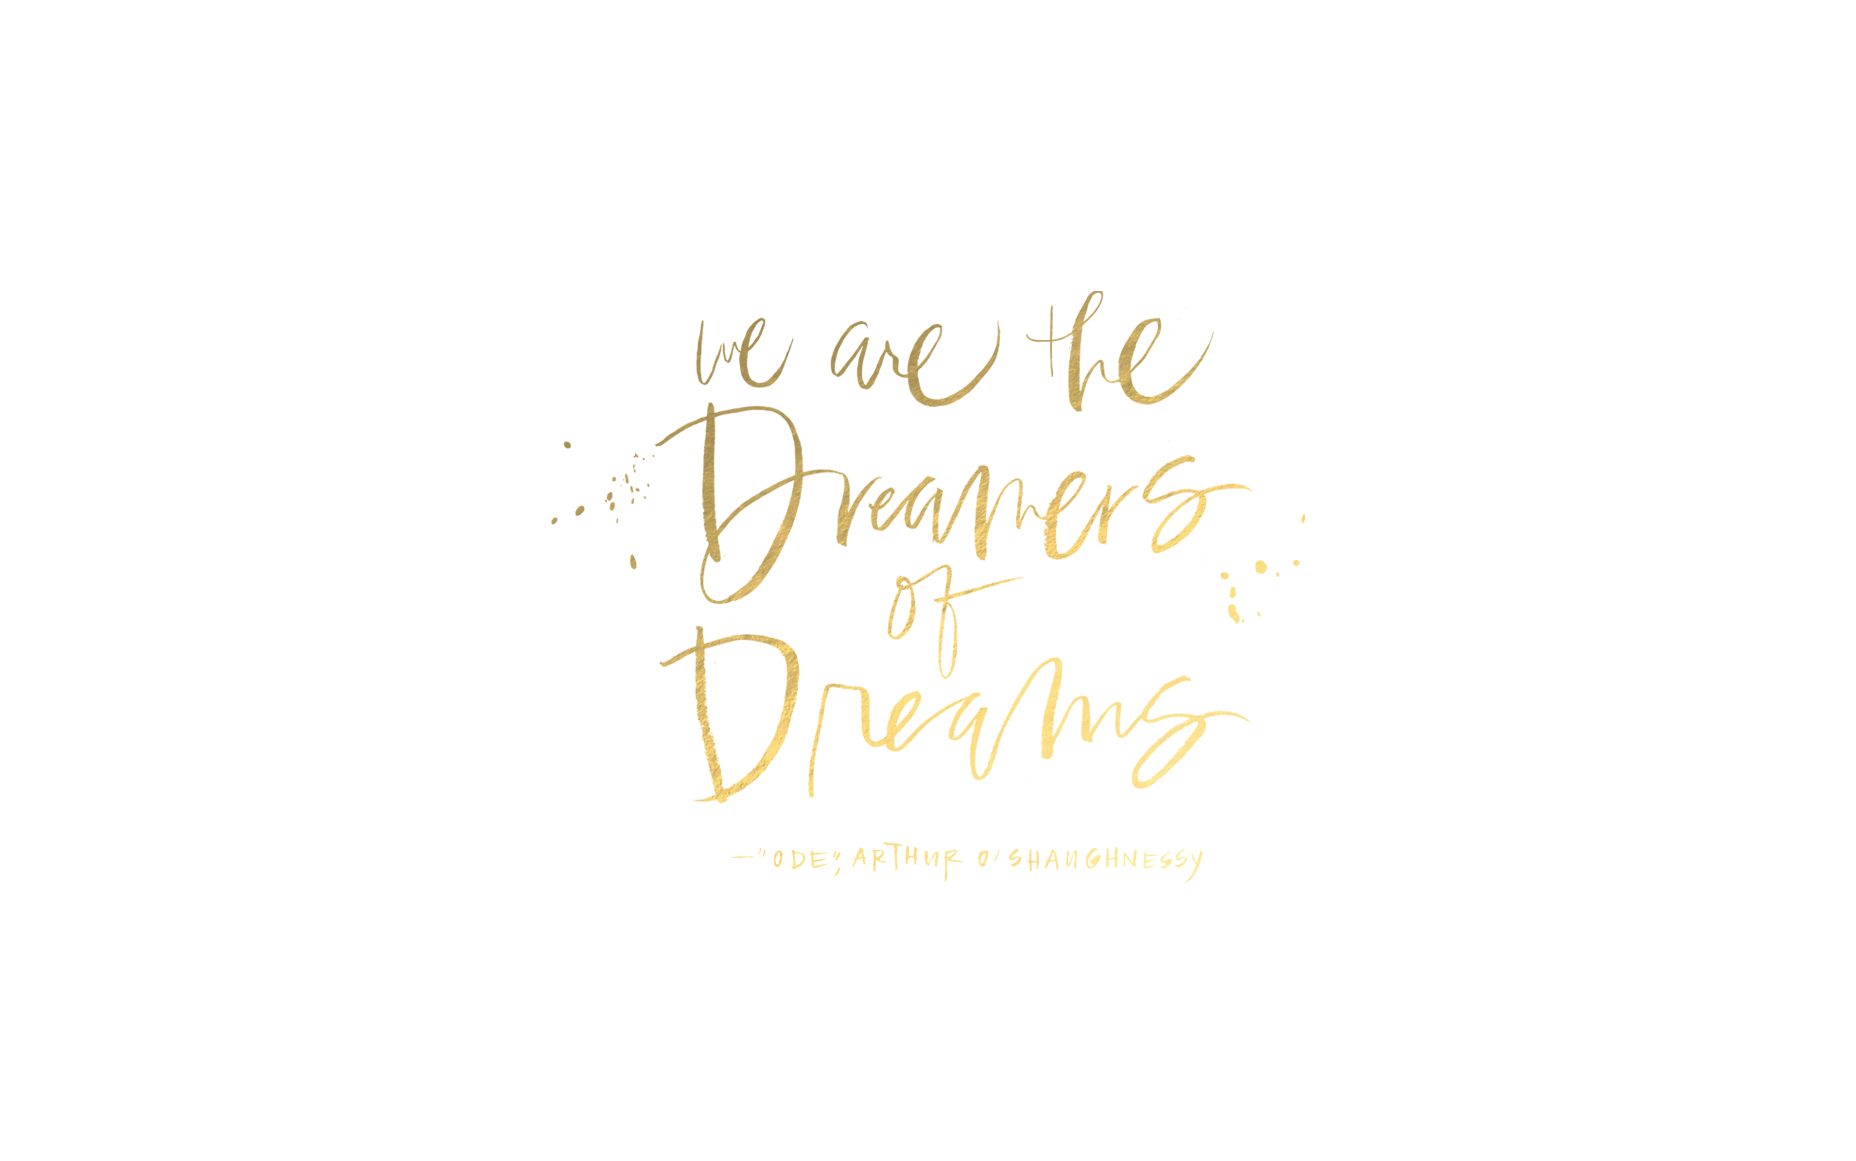 we are the
Dreamers
of
Dreams
—"ODE", ARTHUR O'SHAUGHNESSY